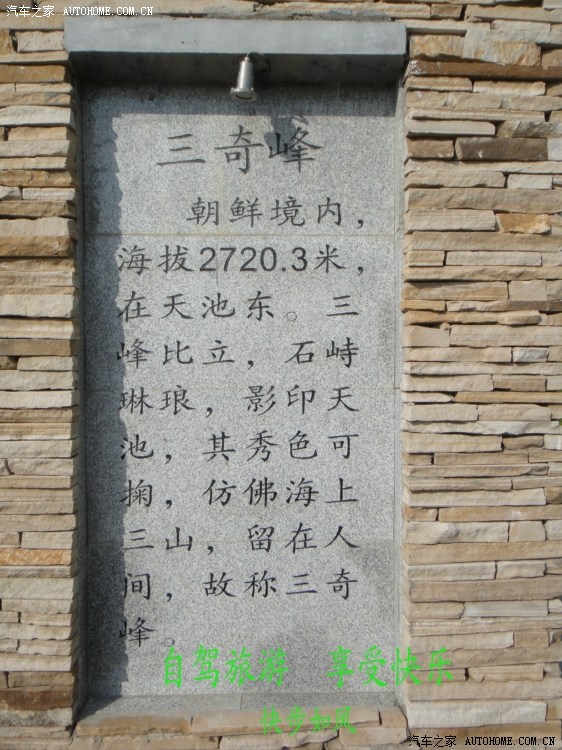 汽车之家 AUTOHOME.COM.CN
汽车之家 AUTOHOME.COM.CN
三奇峰
朝鲜境内，
海拔2720.3米，
在天池东。三
峰比立，石峙
琳琅，影印天
池，其秀色可
掬，仿佛海上
三山，留在人
间，故称三奇
峰。
自驾旅游 享受快乐
快步如风
汽车之家 AUTOHOME.COM.CN